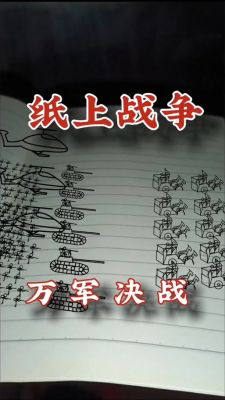 纸上战争
万军决战